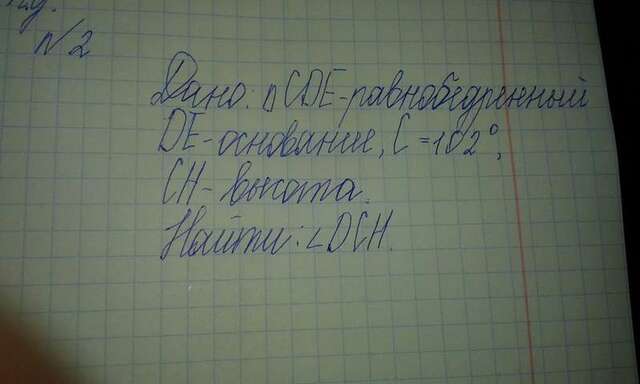 N2
Дано: △CDE-равнобедренный
DE-основание, C=102°,
CH-высота.
Найти: ∠DCH.